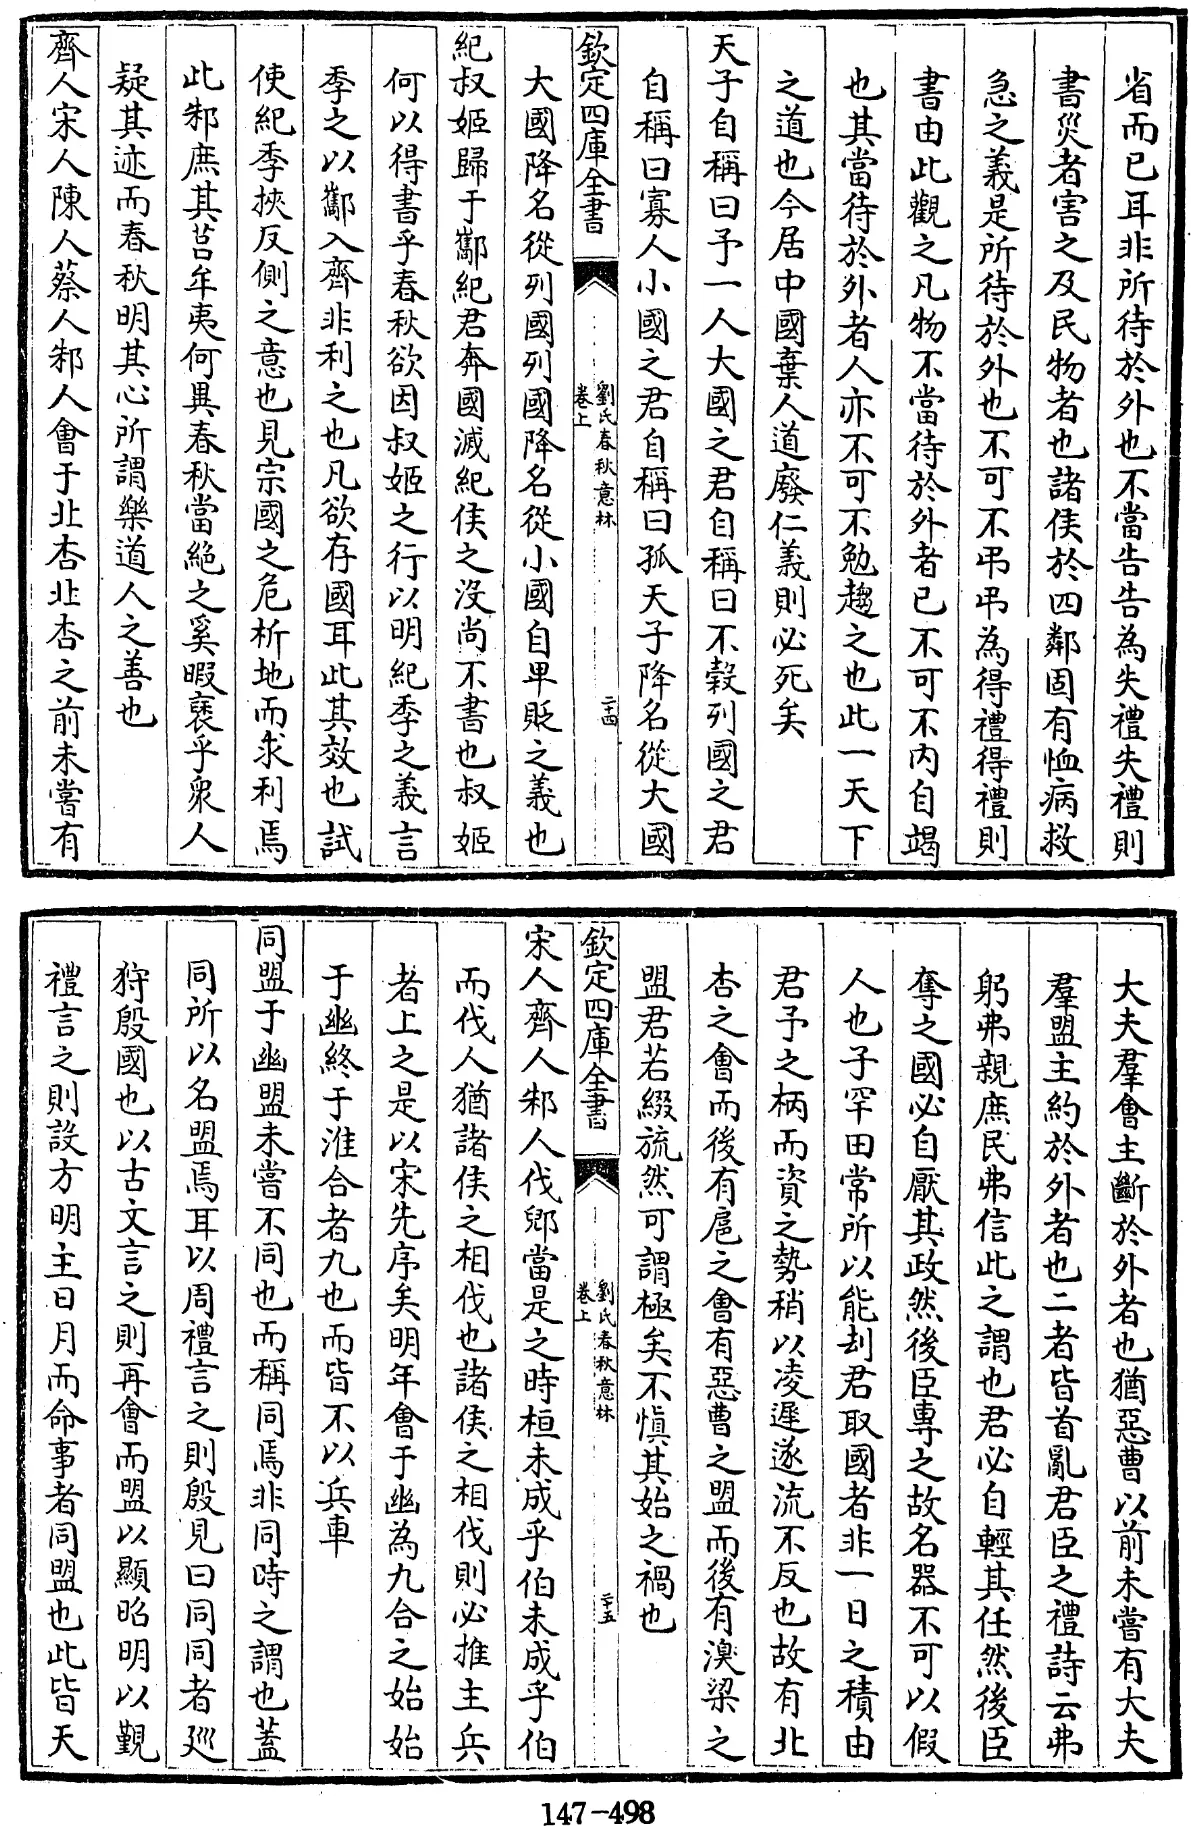 省而已耳非所待於外也不當告告為失禮失禮則
書災者害之及民物者也諸侯於四鄰固有恤病救
急之義是所待於外也不可不弔弔為得禮得禮則
書由此觀之凡物不當待於外者已不可不內自竭
也其當待於外者人亦不可不勉趨之也此一天下
之道也今居中國棄人道廢仁義則必死矣
天子自稱曰予一人大國之君自稱曰不穀列國之君
自稱曰寡人小國之君自稱曰孤天子降名從大國
欽定四庫全書
劉氏春秋意林
卷上
二十四
大國降名從列國列國降名從小國自卑貶之義也
紀叔姬歸于酅紀君奔國滅紀侯之沒尚不書也叔姬
何以得書乎春秋欲因叔姬之行以明紀季之義言
季之以酅入齊非利之也凡欲存國耳此其效也試
使紀季挾反側之意也見宗國之危析地而求利焉
此邾庶其莒牟夷何異春秋當絶之奚暇襃乎衆人
疑其迹而春秋明其心所謂樂道人之善也
齊人宋人陳人蔡人邾人會于北杏北杏之前未嘗有
大夫羣會主斷於外者也猶惡曹以前未嘗有大夫
羣盟主約於外者也二者皆首亂君臣之禮詩云弗
躬弗親庶民弗信此之謂也君必自輕其任然後臣
奪之國必自厭其政然後臣專之故名器不可以假
人也子罕田常所以能刦君取國者非一日之積由
君予之柄而資之勢稍以凌遲遂流不反也故有北
杏之會而後有扈之會有惡曹之盟而後有溴梁之
盟君若綴旒然可謂極矣不愼其始之禍也
欽定四庫全書
劉氏春秋意林
卷上
二十五
宋人齊人邾人伐郳當是之時桓未成乎伯未成乎伯
而伐人猶諸侯之相伐也諸侯之相伐則必推主兵
者上之是以宋先序矣明年會于幽為九合之始始
于幽終于淮合者九也而皆不以兵車
同盟于幽盟未嘗不同也而稱同焉非同時之謂也蓋
同所以名盟焉耳以周禮言之則殷見曰同同者廵
狩殷國也以古文言之則再會而盟以顯昭明以覲
禮言之則設方明主日月而命事者同盟也此皆天
147-498